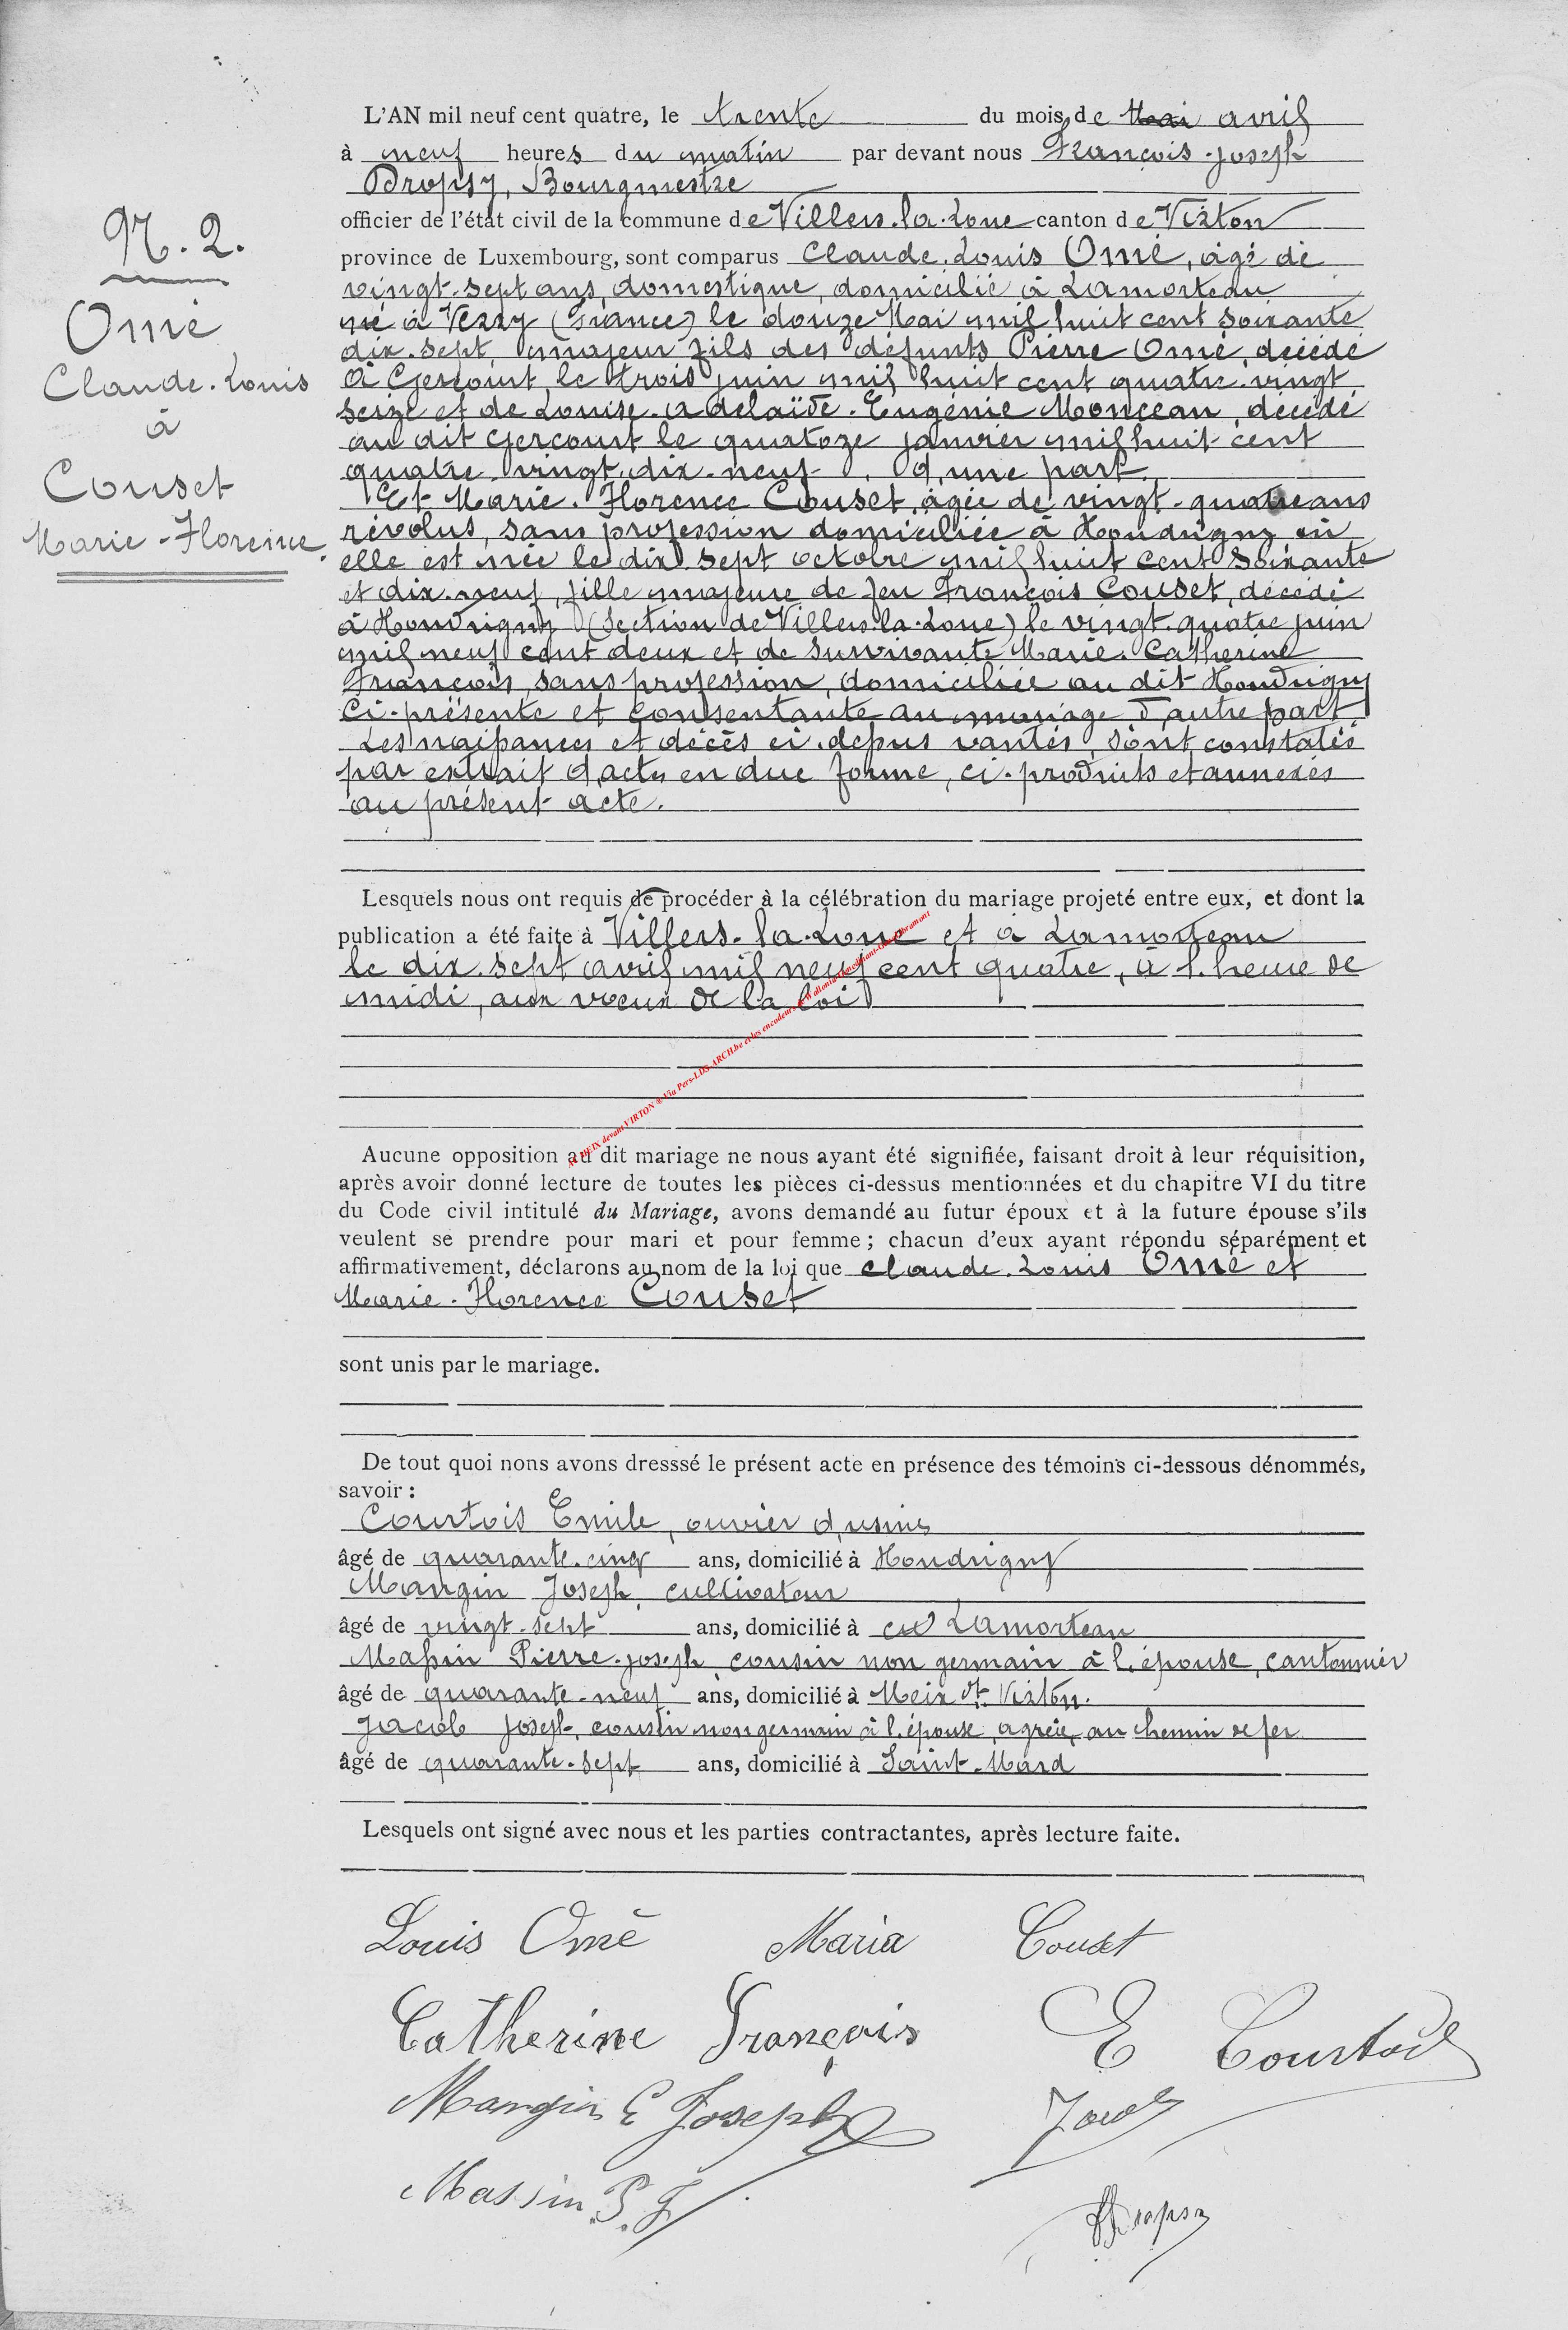 N. 2.
Omé
Claude.Louis
à
Couset
Marie-Florence.
L'AN mil neuf cent quatre, le trente du mois de Mai avril
à neuf heures du matin par devant nous François-Joseph
Dropsy, Bourgmestre
officier de l'état civil de la commune de Villers-la-Loue canton de Virton
province de Luxembourg, sont comparus Claude.Louis Omé, âgé de
vingt-sept ans, domestique, domicilié à Lamorteau
né à Verry (France) le douze Mai mil huit cent soixante
dix-sept, majeur fils des défunts Pierre Omé, décédé
à Gercourt le trois juin mil huit cent quatre-vingt
seize et de Louise-Adelaïde-Eugénie Monceau, décédé
au dit Gercourt le quatoze janvier mil huit cent
quatre-vingt-dix-neuf, d'une part.
Et Marie-Florence Couset, âgée de vingt-quatre ans
révolus, sans profession domiciliée à Houdrigny où
elle est née le dix sept octobre mil huit cent soixante
et dix-neuf, fille majeure de feu François Couset, décédé
à Houdrigny (section de Villers-la-Loue) le vingt-quatre juin
mil neuf cent deux et de survivante Marie-Catherine
François, sans profession, domiciliée au dit Houdrigny
ci-présente et consentante au mariage d'autre part.
Les naissances et décès ci-dessus vantés, sont constatés
par extrait d'actes en due forme, ci-produits et annexés
au présent acte.
Lesquels nous ont requis de procéder à la célébration du mariage projeté entre eux, et dont la
publication a été faite à Villers-la-Loue et à Lamorteau
le dix-sept avril mil neuf cent quatre, à l'heure de
midi, aux voeux de la loi
Aucune opposition au dit mariage ne nous ayant été signifiée, faisant droit à leur réquisition,
après avoir donné lecture de toutes les pièces ci-dessus mentionnées et du chapitre VI du titre
du Code civil intitulé du Mariage, avons demandé au futur époux et à la future épouse s'ils
veulent se prendre pour mari et pour femme ; chacun d'eux ayant répondu séparément et
affirmativement, déclarons au nom de la loi que Claude-Louis Omé et
Marie-Florence Couset
sont unis par le mariage.
De tout quoi nons avons dresssé le présent acte en présence des témoins ci-dessous dénommés,
savoir :
Courtois Emile, ouvrier d'usines
âgé de quarante-cinq ans, domicilié à Houdrigny
Mangin Joseph, cultivateur
âgé de vingt-sept ans, domicilié à Lamorteau
Massin Pierre-Joseph cousin non germain à l'épouse, cantonnier
âgé de quarante-neuf ans, domicilié à Meix dt Virton.
Jacob Joseph, cousin non germain à l'épouse, agréé au chemin de fer
âgé de quarante-sept ans, domicilié à Saint-Mard
Lesquels ont signé avec nous et les parties contractantes, après lecture faite.
Louis Omé Maria Couset
Catherine François E Courtois
Mangin E Joseph Jacob
Massin P. J
Dropsy